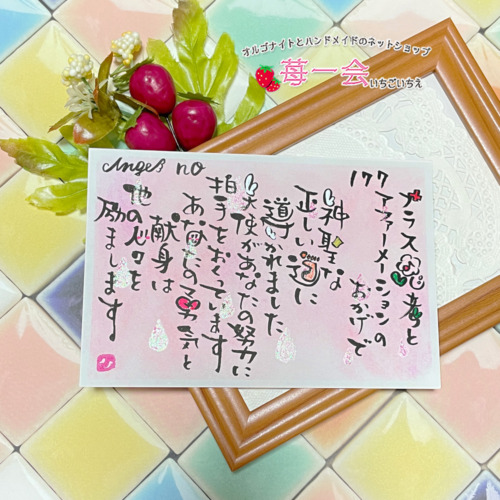 オルゴナイトとハンドメイドのネットショップ
苺一会
いちごいちえ
Angel no
177
プラス思考と
アファーメーションの
おかげで
神聖な
正しい道に
導かれました
天使があなたの努力に
拍手をおくっています
あなたの勇気と
献身は
他の人々を
励まします